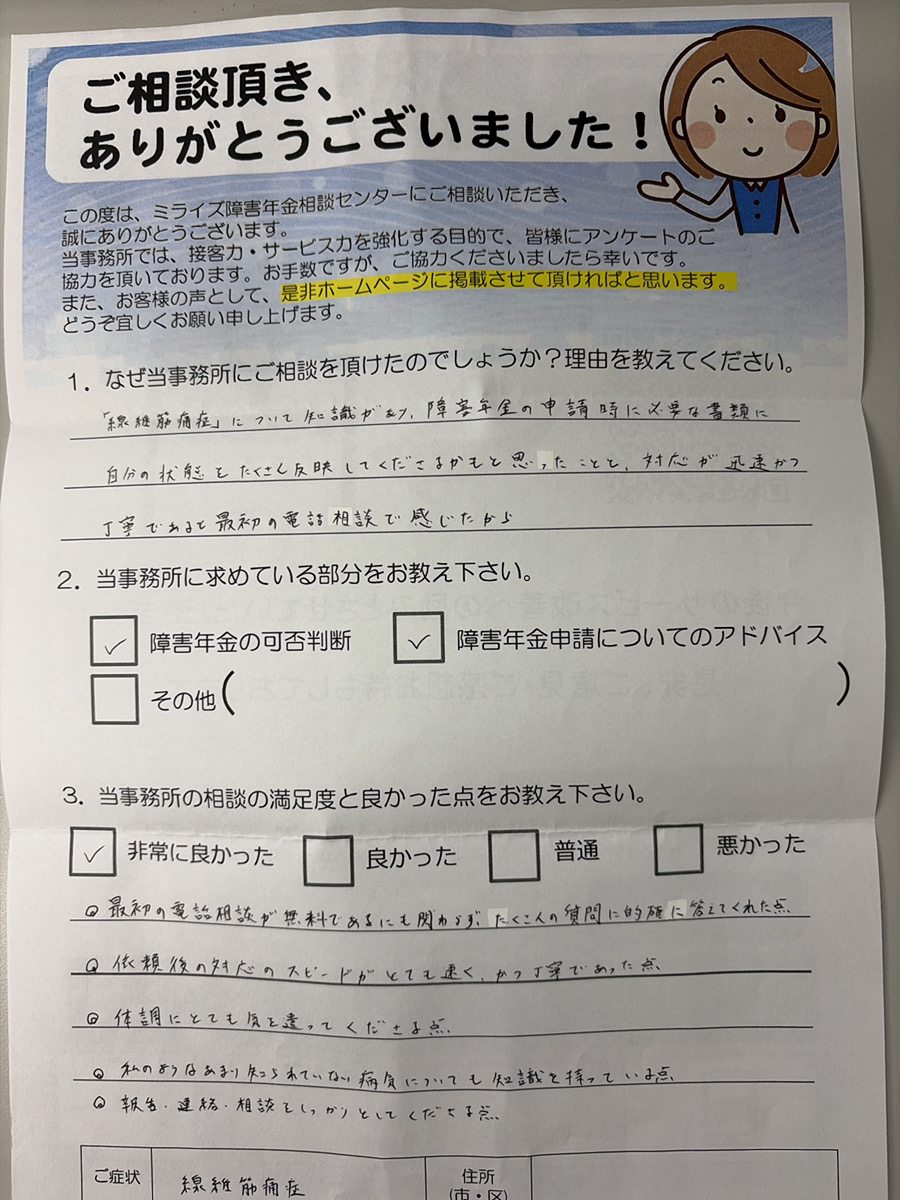 ご相談頂き、
ありがとうございました！
この度は、ミライズ障害年金相談センターにご相談いただき、
誠にありがとうございます。
当事務所では、接客力・サービス力を強化する目的で、皆様にアンケートのご
協力を頂いております。お手数ですが、ご協力くださいましたら幸いです。
また、お客様の声として、是非ホームページに掲載させて頂ければと思います。
どうぞ宜しくお願い申し上げます。
1．なぜ当事務所にご相談を頂けたのでしょうか？理由を教えてください。
「線維筋痛症」について知識があり、障害年金の申請時に必要な書類に
自分の状態をたくさん反映してくださるかもと思ったことと、対応が迅速かつ
丁寧であると最初の電話相談で感じたから
2．当事務所に求めている部分をお教え下さい。
✓ 障害年金の可否判断 ✓ 障害年金申請についてのアドバイス
その他（ ）
3．当事務所の相談の満足度と良かった点をお教え下さい。
✓ 非常に良かった 良かった 普通 悪かった
◎ 最初の電話相談が無料であるにも関わらず、たくさんの質問に的確に答えてくれた点
◎ 依頼後の対応のスピードがとても速く、かつ丁寧であった点
◎ 体調にとても気を遣ってくださる点
◎ 私のようなあまり知られていない病気についても知識を持っている点
◎ 報告・連絡・相談をしっかりとしてくださる点
ご症状 線維筋痛症 住所
(市・区)